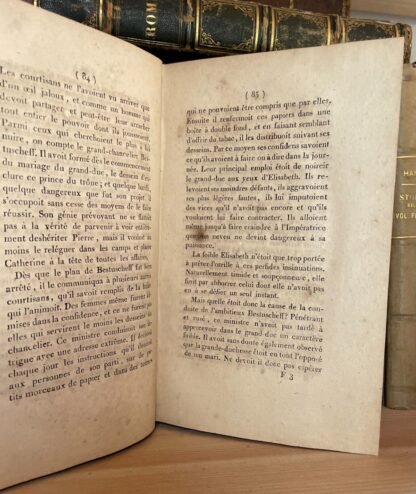 ROM
( 84 )
Les courtisans ne l'avoient vu arriver que
d'un œil jaloux, et comme un homme qui
devoit partager et peut-être leur arracher
tout entier le pouvoir dont ils jouissoient
Parmi ceux qui cherchoient le plus à
nuire, on compte le grand-chancelier Bes-
tuscheff. Il avoit formé dès le commencement
du mariage du grand-duc, le dessein d'ex-
clure ce prince du trône ; et quelque hardi,
quelque dangereux que fut son projet
s'occupoit sans cesse des moyens de le faire
réussir. Son génie prévoyant ne se flattoit
pas à la vérité de parvenir à voir entièrement
deshériter Pierre, mais il vouloit
moins le reléguer dans les camps et placer
Catherine à la tête de toutes les affaires.
Dès que le plan de Bestuscheff fut
arrêté, il le communiqua à plusieurs autres
courtisans, qu'il savoit remplis de la haine
qui l'animoit. Des femmes même furent ad-
mises dans la confidence, et ce ne furent pas
elles qui servirent le moins les desseins du
chancelier. Ce ministre conduisit son in-
trigue avec une adresse extrême. Il donnoit
chaque jour les instructions qu'il destinoit
aux personnes de son parti, sur de pe-
tits morceaux de papier et dans des termes
( 85 )
qui ne pouvoient être compris que par elles.
Ensuite il renfermoit ces papiers dans une
boîte à double fond, et en faisant semblant
d'offrir du tabac, il les distribuoit suivant ses
desseins. Par ce moyen ses confidens savoient
ce qu'ils avoient à faire ou à dire dans la jour-
née. Leur principal emploi étoit de noircir
le grand-duc aux yeux d'Elisabeth. Ils re-
levoient ses moindres défauts, ils aggravoient
ses plus légères fautes, ils lui imputoient
des vices qu'il n'avoit pas encore et qu'ils
vouloient lui faire contracter. Ils alloient
même jusqu'à faire craindre à l'Impératrice
que son neveu ne devint dangereux à sa
puissance.
La foible Elisabeth n'étoit que trop portée
à prêter l'oreille à ces perfides insinuations.
Naturellement timide et soupçonneuse, elle
finit par abhorrer celui dont elle n'avoit pas
eu à se défier un seul instant.
Mais quelle étoit donc la cause de la con-
duite de l'ambitieux Bestuscheff? Pénétrant
et rusé, ce ministre n'avoit pas tardé à
appercevoir dans le grand-duc un caractère
foible. Il avoit sans doute également observé
que la grande-duchesse étoit en tout l'opposé
de son mari. Ne devoit-il donc pas espérer
F 3
HAN
VOL. F